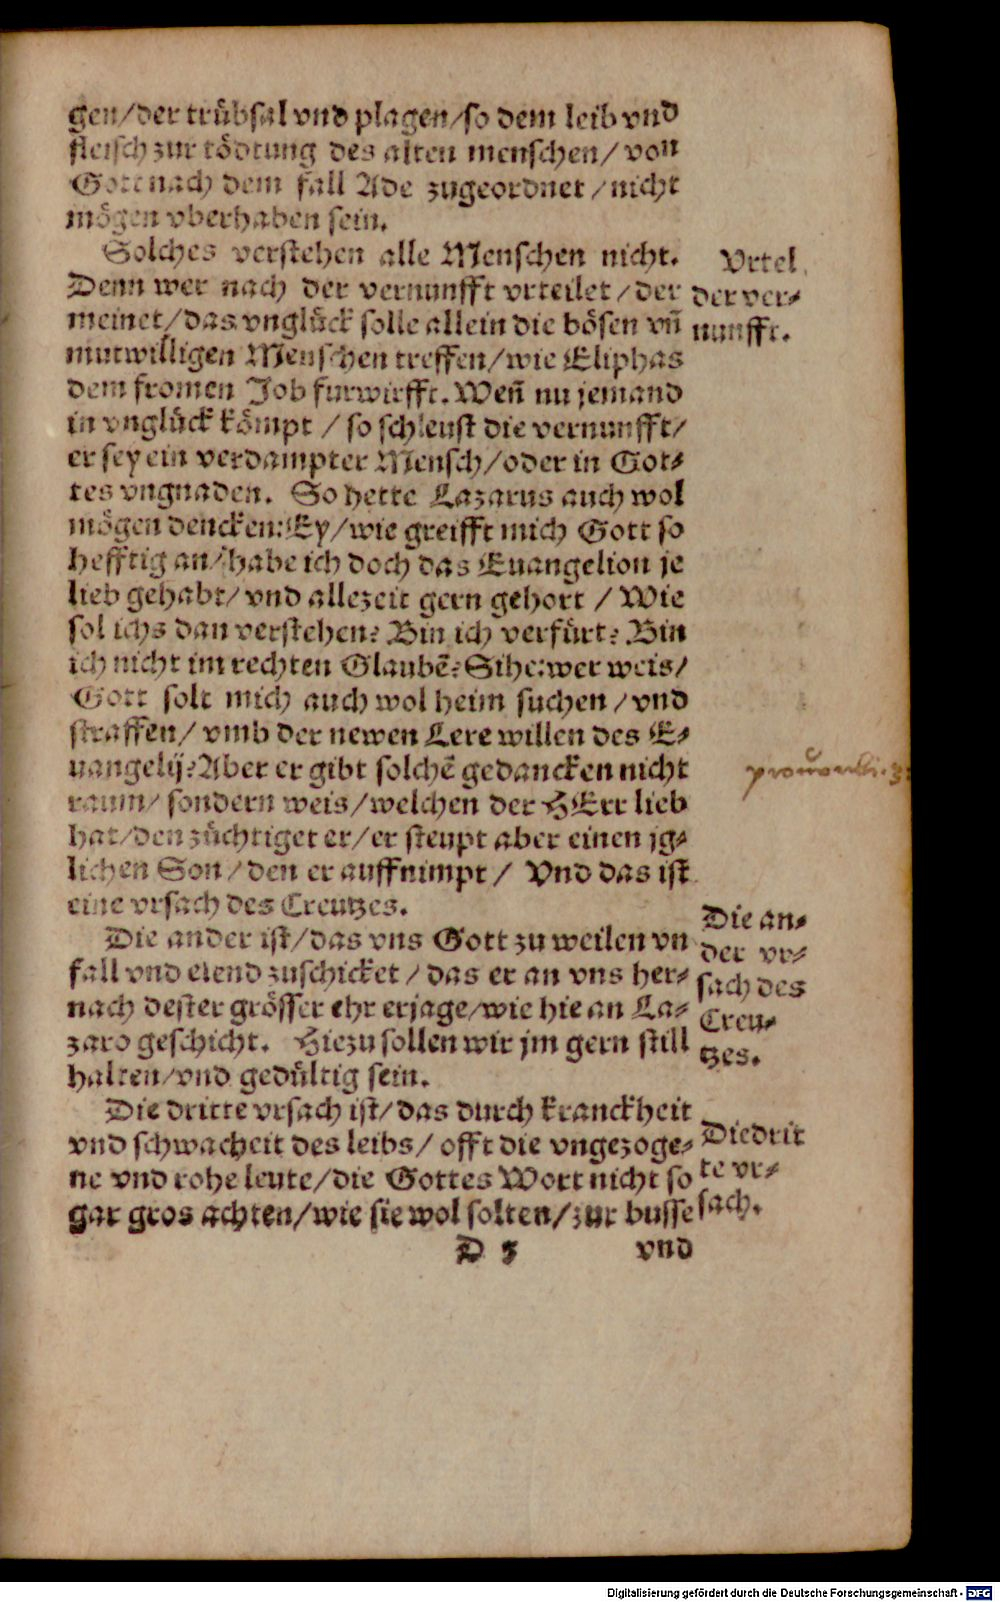 gen/der trübsal vnd plagen/so dem leib vnd
fleisch zur tödtung des alten menschen/ von
Gott nach dem fall Ade zugeordnet/nicht
mögen vberhaben sein.
Solches verstehen alle Menschen nicht.
Denn wer nach der vernunfft vrteilet/der
meinet/das vnglück solle allein die bösen vñ
mutwilligen Menschen treffen/wie Eliphas
dem fromen Job furwirfft. Weñ nu jemand
in vnglück kömpt / so schleust die vernunfft/
er sey ein verdampter Mensch/oder in Got-
tes vngnaden. So hette Lazarus auch wol
mögen dencken: Ey/wie greifft mich Gott so
hefftig an/habe ich doch das Euangelion je
lieb gehabt/ vnd allezeit gern gehort / Wie
sol ichs dan verstehen? Bin ich verfürt? Bin
ich nicht im rechten Glaubē? Sihe: wer weis/
Gott solt mich auch wol heim suchen / vnd
straffen/ vmb der newen Lere willen des E-
uangelij? Aber er gibt solchē gedancken nicht
raum/ sondern weis/welchen der HErr lieb
hat/den züchtiget er/er steupt aber einen jg-
lichen Son/den er auffnimpt/ Vnd das ist
eine vrsach des Creutzes.
Die ander ist/das vns Gott zu weilen vn
fall vnd elend zuschicket / das er an vns her-
nach dester grösser ehr erjage/wie hie an La-
zaro geschicht. Hiezu sollen wir jm gern still
halten/vnd gedültig sein.
Die dritte vrsach ist/das durch kranckheit
vnd schwacheit des leibs/ offt die vngezoge-
ne vnd rohe leute/die Gottes Wort nicht so
gar gros achten/wie sie wol solten/zur busse
D 3 vnd
Vrtel
der ver-
nunfft.
prouerbi. 3.
Die an-
der vr-
sach des
Creu-
tzes.
Die drit
te vr-
sach.
Digitalisierung gefördert durch die Deutsche Forschungsgemeinschaft - DFG